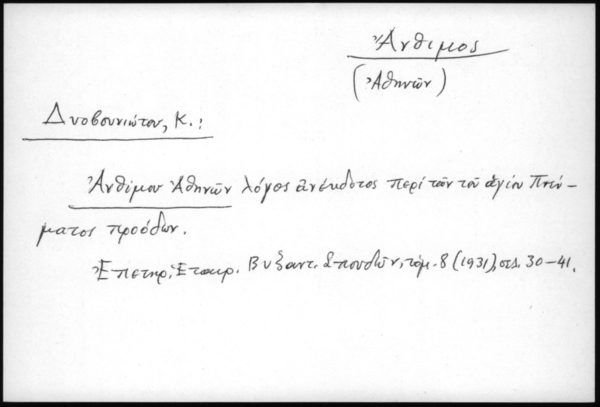 Ἄνθιμος
(Ἀθηνῶν)
Δυοβουνιώτου, Κ.:
Ἀνθίμου Ἀθηνῶν λόγος ἀνέκδοτος περὶ τῶν τοῦ ἁγίου Πνεύ-
ματος προόδων.
Ἐπετηρ. Ἑταιρ. Βυζαντ. Σπουδῶν, τόμ. 8 (1931), σελ. 30-41.